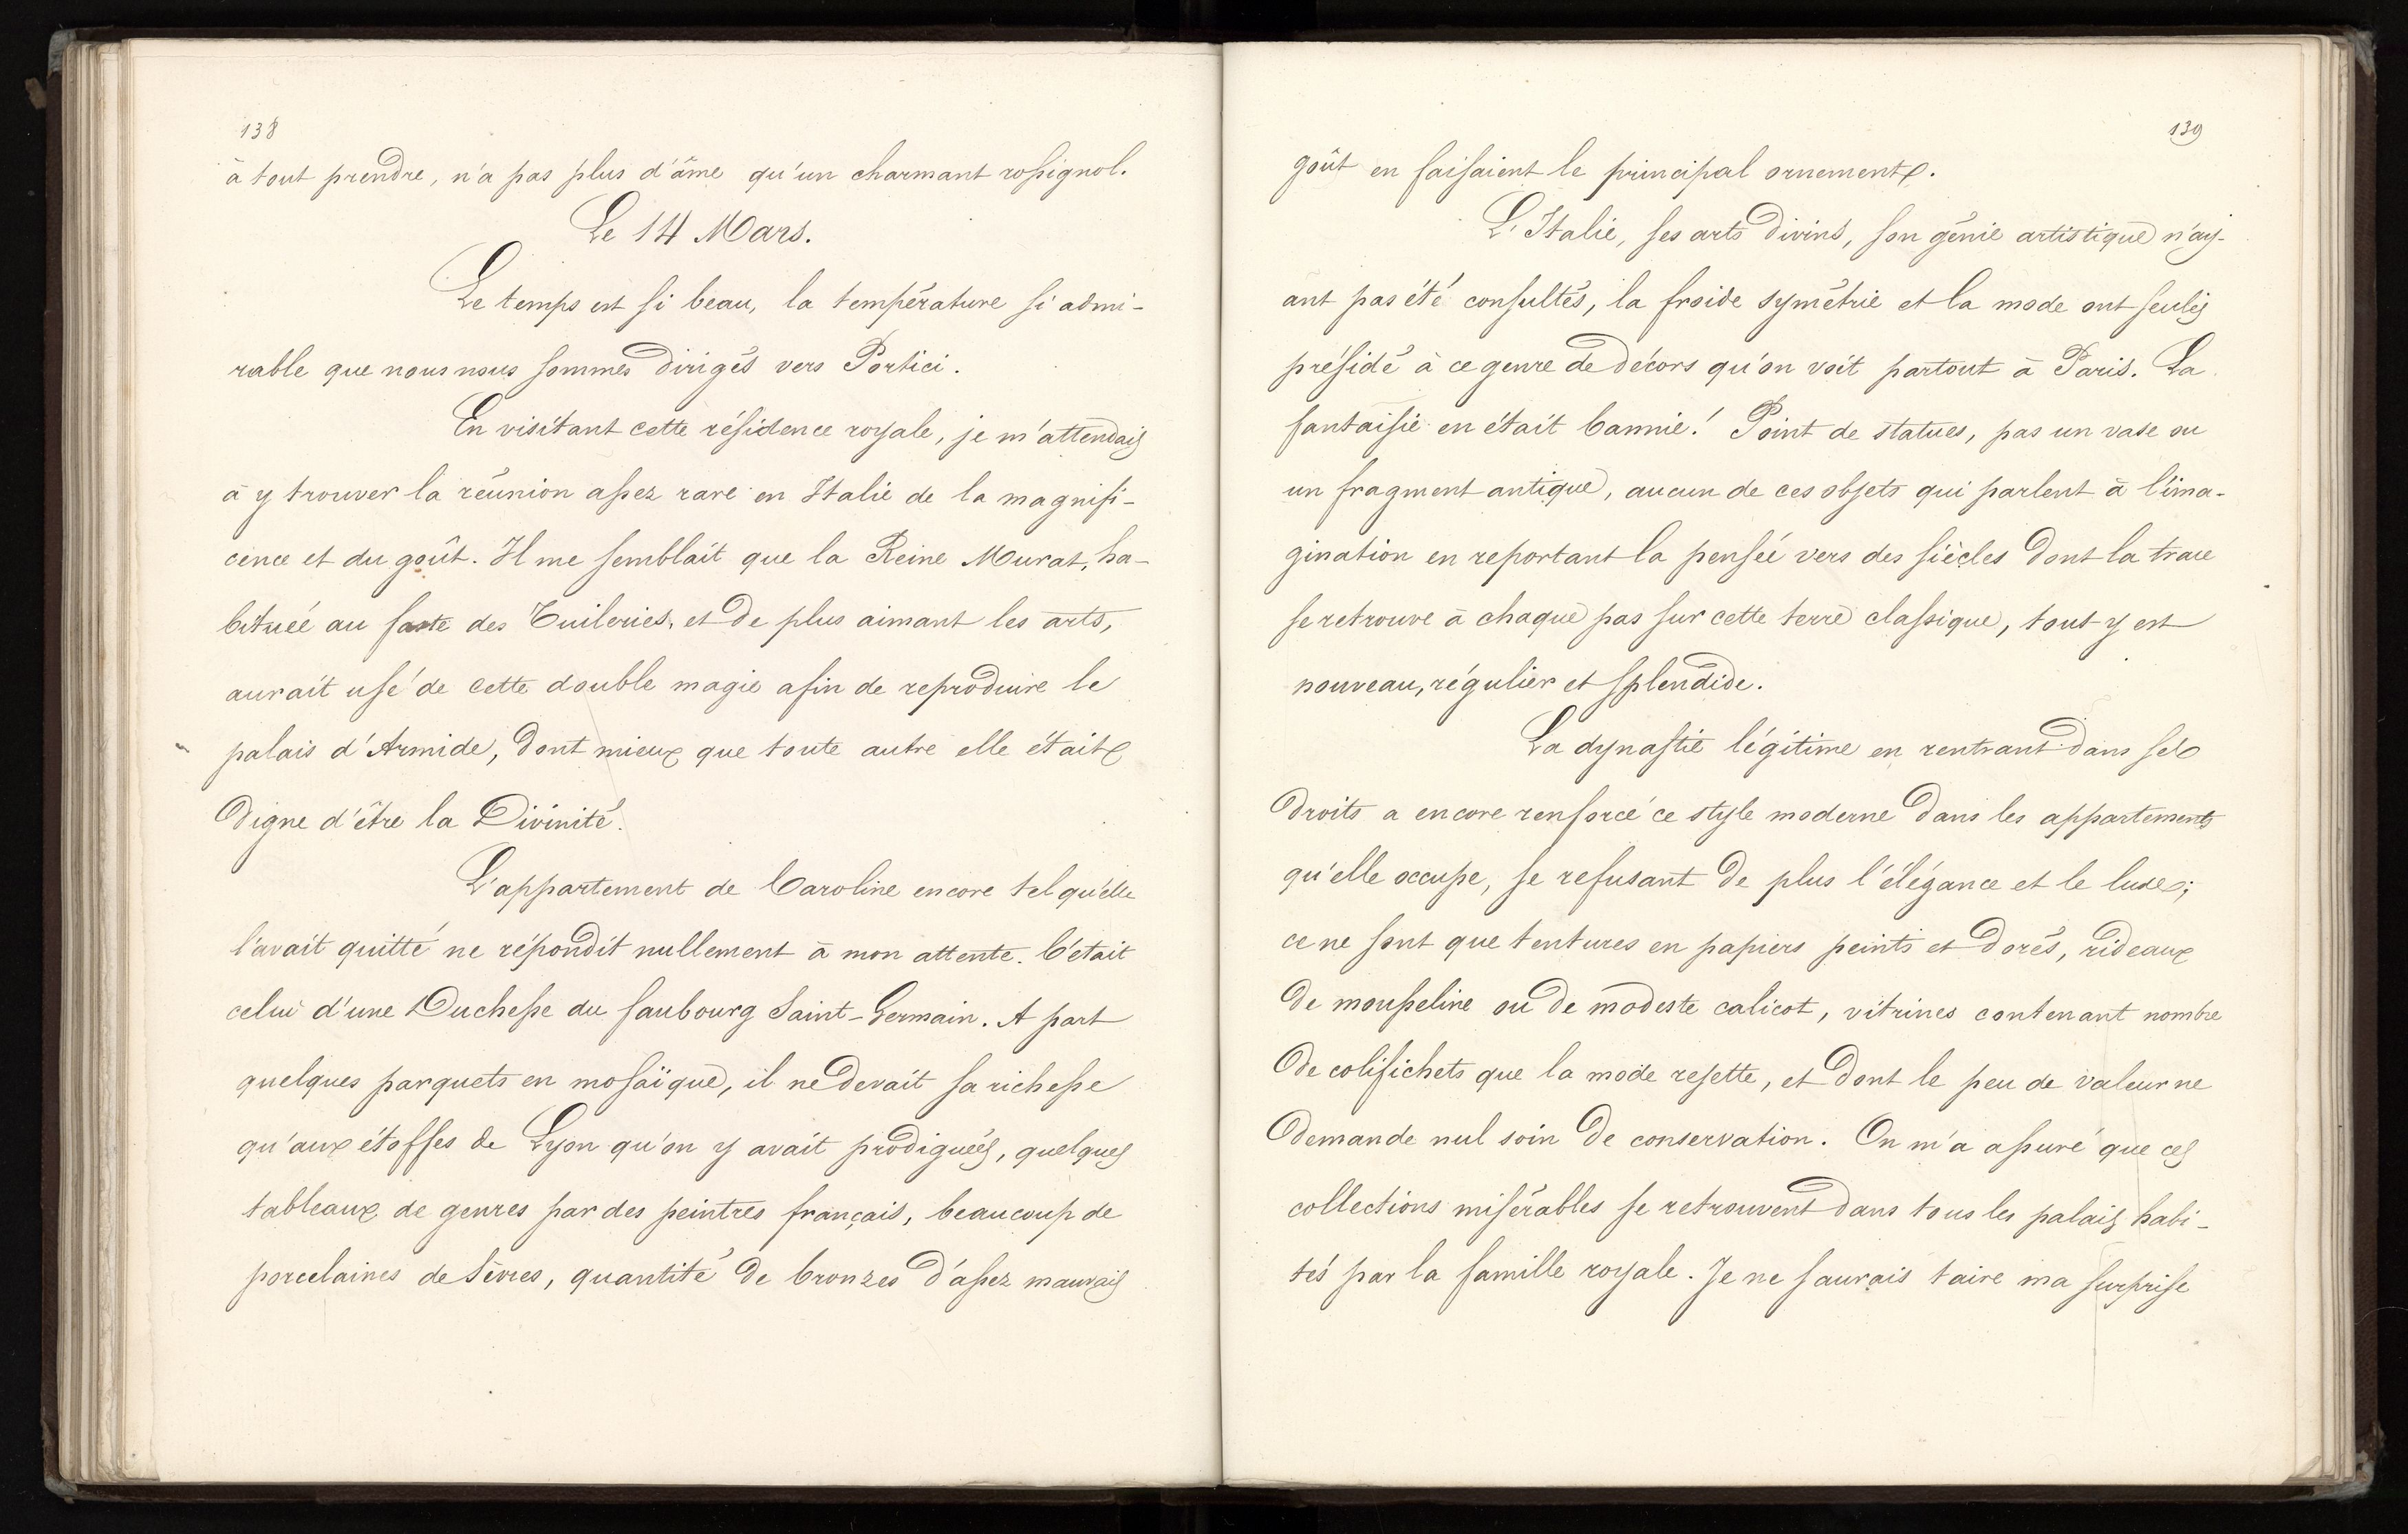 138
à tout prendre, n'a pas plus d'âme qu'un charmant rossignol.
Le 14 Mars.
Le temps est si beau, la température si admi-
rable que nous nous sommes dirigés vers Portici.
En visitant cette résidence royale, je m'attendais
à y trouver la réunion assez rare en Italie de la magnifi-
cence et du goût. Il me semblait que la Reine Murat, ha-
bituée au faste des Tuileries, et de plus aimant les arts,
aurait usé de cette double magie afin de reproduire le
palais d'Armide, dont mieux que toute autre elle était
digne d'être la Divinité.
L'appartement de Caroline encore tel qu'elle
l'avait quitté ne répondit nullement à mon attente. C'était
celui d'une Duchesse du faubourg Saint-Germain. A part
quelques parquets en mosaïque, il ne devait sa richesse
qu'aux étoffes de Lyon qu'on y avait prodiguées, quelques
tableaux de genres par des peintres français, beaucoup de
porcelaines de Sèvres, quantité de bronzes d'assez mauvais
139
goût en faisaient le principal ornement.
L'Italie, ses arts divins, son génie artistique n'ay-
ant pas été consultés, la froide symétrie et la mode ont seules
présidé à ce genre de décors qu'on voit partout à Paris. La
fantaisie en était bannie! Point de statues, pas un vase ou
un fragment antique, aucun de ces objets qui parlent à l'ima-
gination en reportant la pensée vers des siècles dont la trace
se retrouve à chaque pas sur cette terre classique, tout y est
nouveau, régulier et splendide.
La dynastie légitime en rentrant dans ses
droits a encore renforcé ce style moderne dans les appartements
qu'elle occupe, se refusant de plus l'élégance et le luxe;
ce ne sont que tentures en papiers peints et dorés, rideaux
de mousseline ou de modeste calicot, vitrines contenant nombre
de colifichets que la mode rejette, et dont le peu de valeur ne
demande nul soin de conservation. On m'a assuré que ces
collections misérables se retrouvent dans tous les palais habi-
tés par la famille royale. Je ne saurais taire ma surprise